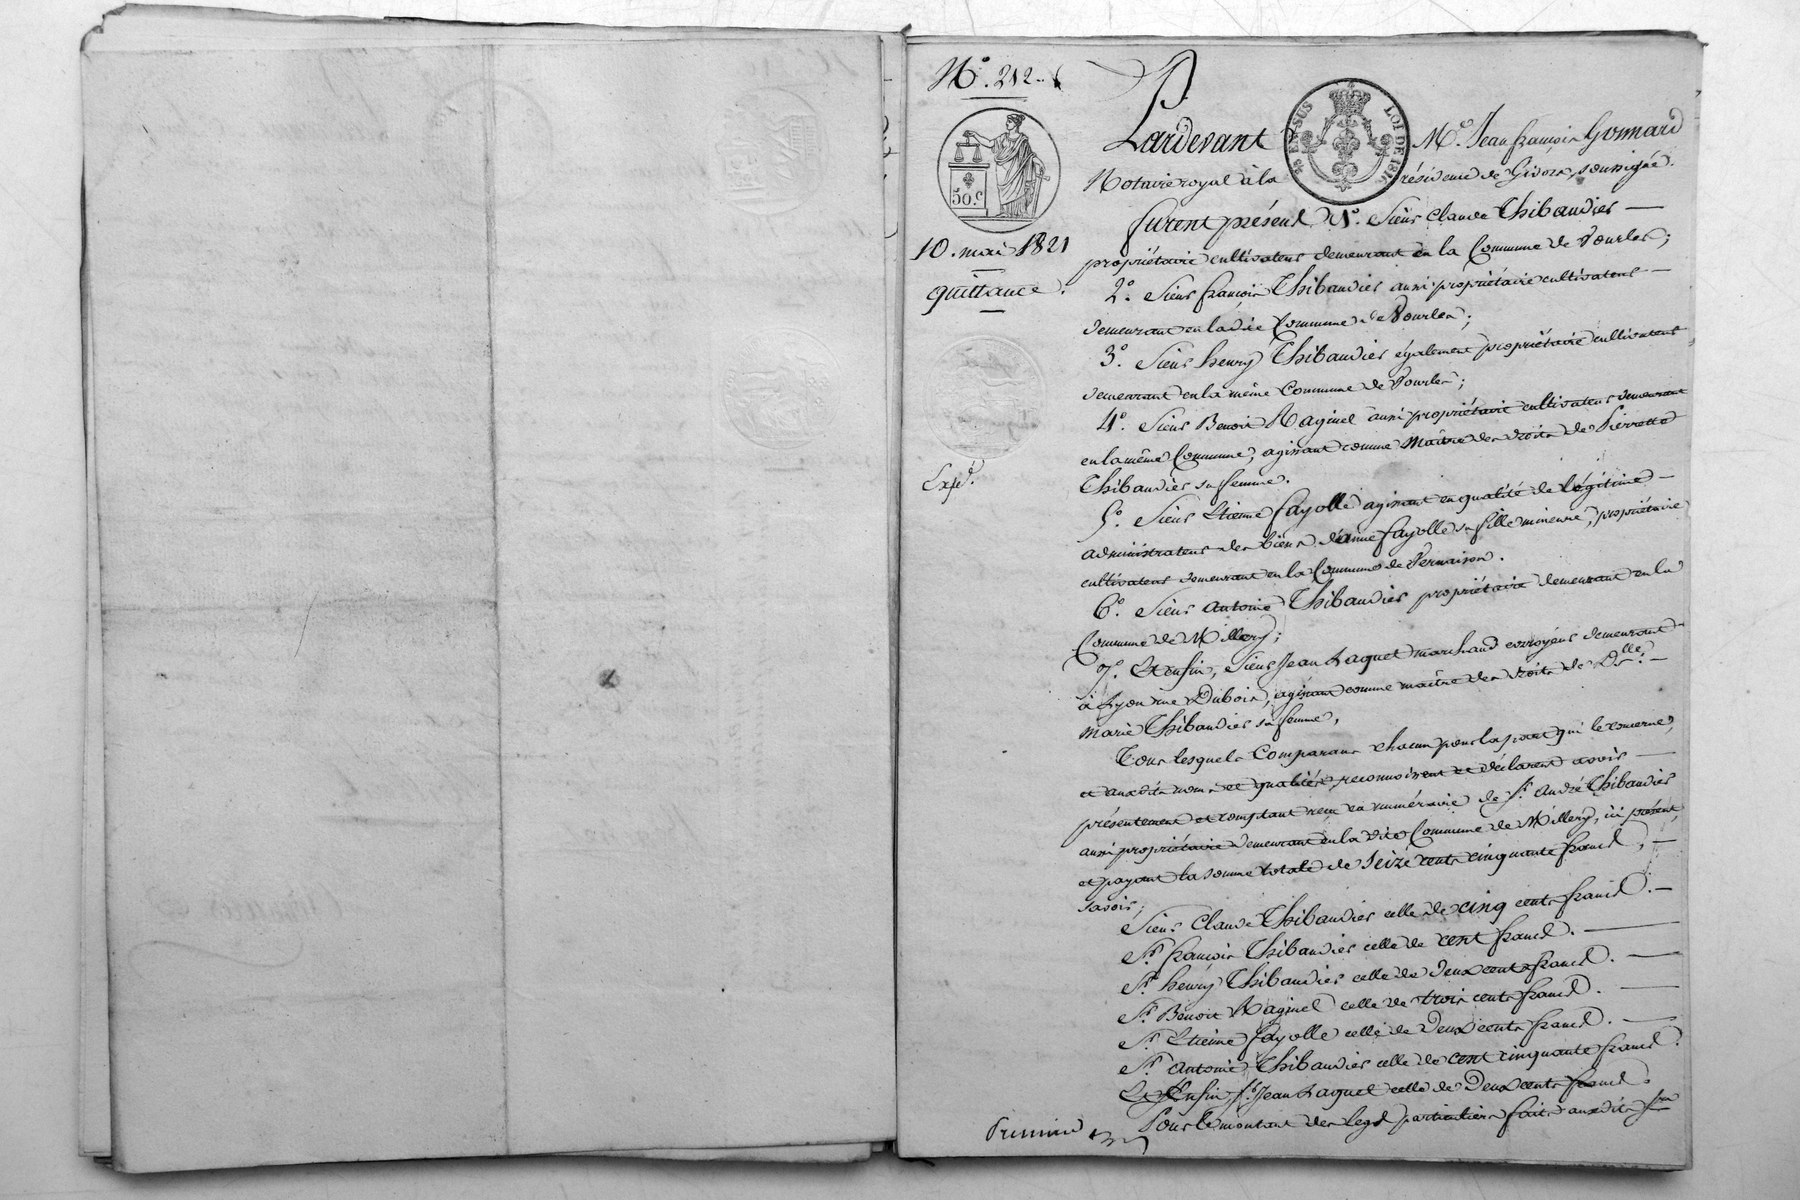 N.° 212..
50.c
10. mai 1821
quittance.
Exp.d
Pardevant M.e Jean françois Gomard
EN SUS LOI DE 1816
Notaire royal à la résidence de Givors, soussigné.
furent présent 1.° Sieur Claude Thibaudier —
propriétaire cultivateur demeurant en la Commune de Vourles;
2.° Sieur françois Thibaudier aussi propriétaire cultivateur —
demeurant en ladite Commune de Vourles;
3.° Sieur henry Thibaudier également propriétaire cultivateur
demeurant en la même Commune de Vourles;
4.° Sieur Benoit Raginel aussi propriétaire cultivateur demeurant
en la même Commune, agissant comme Maître des droits de Pierrette
Thibaudier sa femme.
5.° Sieur Etienne fayolle agissant en qualité de légitime —
administrateur des biens d'anne fayolle sa fille mineure, propriétaire
cultivateur demeurant en la Commune de Vernaison.
6.° Sieur antoine Thibaudier propriétaire demeurant en la
Commune de Millery;
7.° Et enfin, Sieur Jean Raquet marchand corroyeur demeurant
à Lyon rue Dubois, agissant comme maître des droits de D.lle —
marie Thibaudier sa femme,
Tous lesquels Comparans chacun pour la part qui le concerne,
et auxdits noms et qualités, reconnoissent et déclarent avoir —
présentement et comptant reçu en numéraire de S.r andré Thibaudier
aussi propriétaire demeurant en la dite Commune de Millery, ici présent,
et payant la somme totale de seize cents cinquante francs, —
savoir;
Sieur Claude Thibaudier celle de cinq cents francs. —
S.r françois Thibaudier celle de cent francs. —
S.r henry Thibaudier celle de deux cents francs. —
S.r Benoit Raginel celle de trois cents francs. —
S.r Etienne fayolle celle de Deux cents francs. —
S.r antoine Thibaudier celle de cent cinquante francs.
Et Enfin, S.r Jean Raquet celle de Deux cents francs.
Pour le montant des legs particuliers faits auxdits